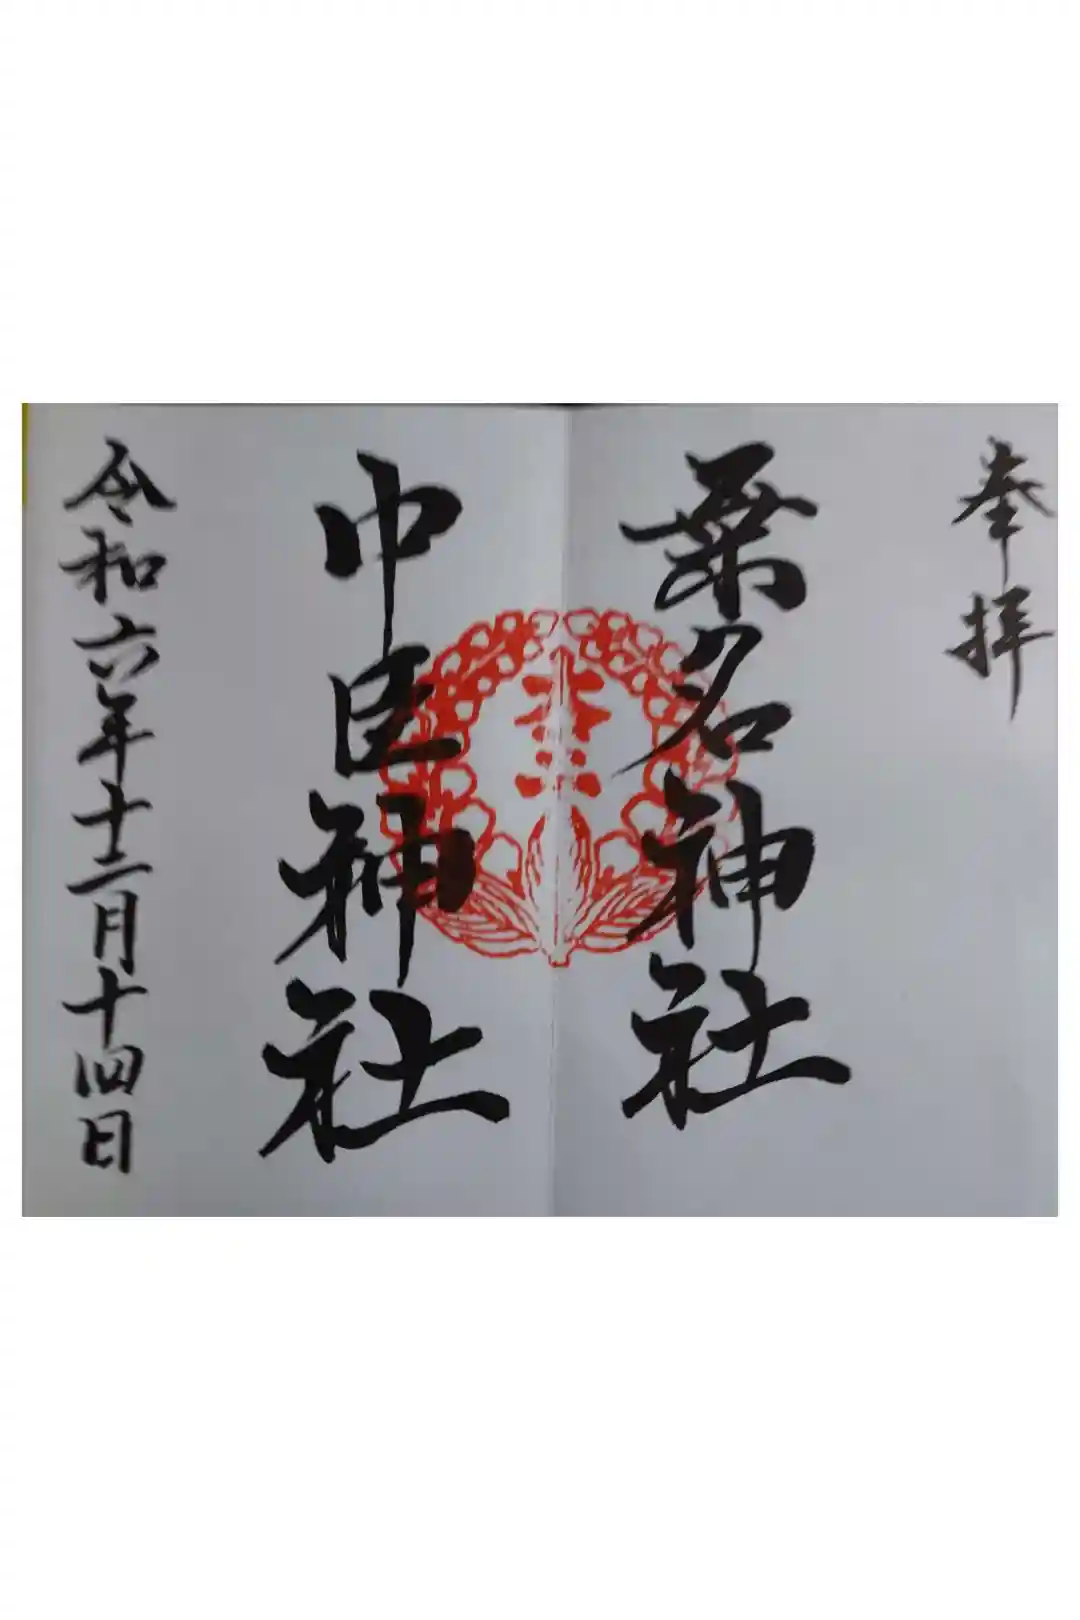 奉拝
桑名神社
中臣神社
令和六年十二月十四日